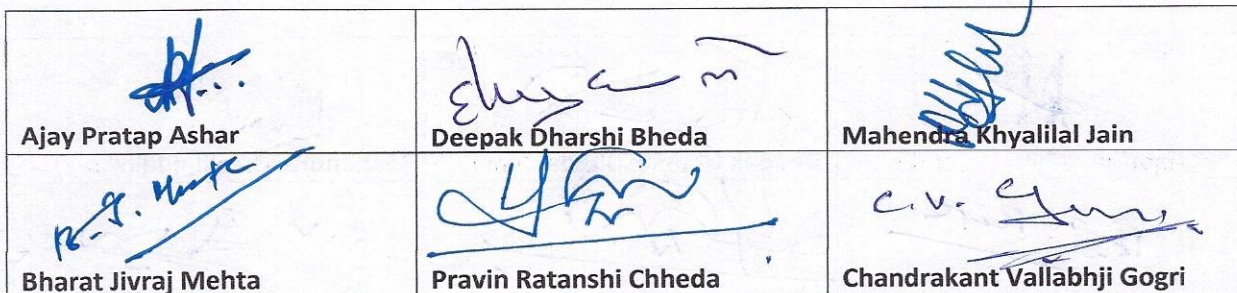 Ajay Pratap Ashar
Deepak Dharshi Bheda
Mahendra Khyalilal Jain
B. J. Mehta
C.V.
Bharat Jivraj Mehta
Pravin Ratanshi Chheda
Chandrakant Vallabhji Gogri